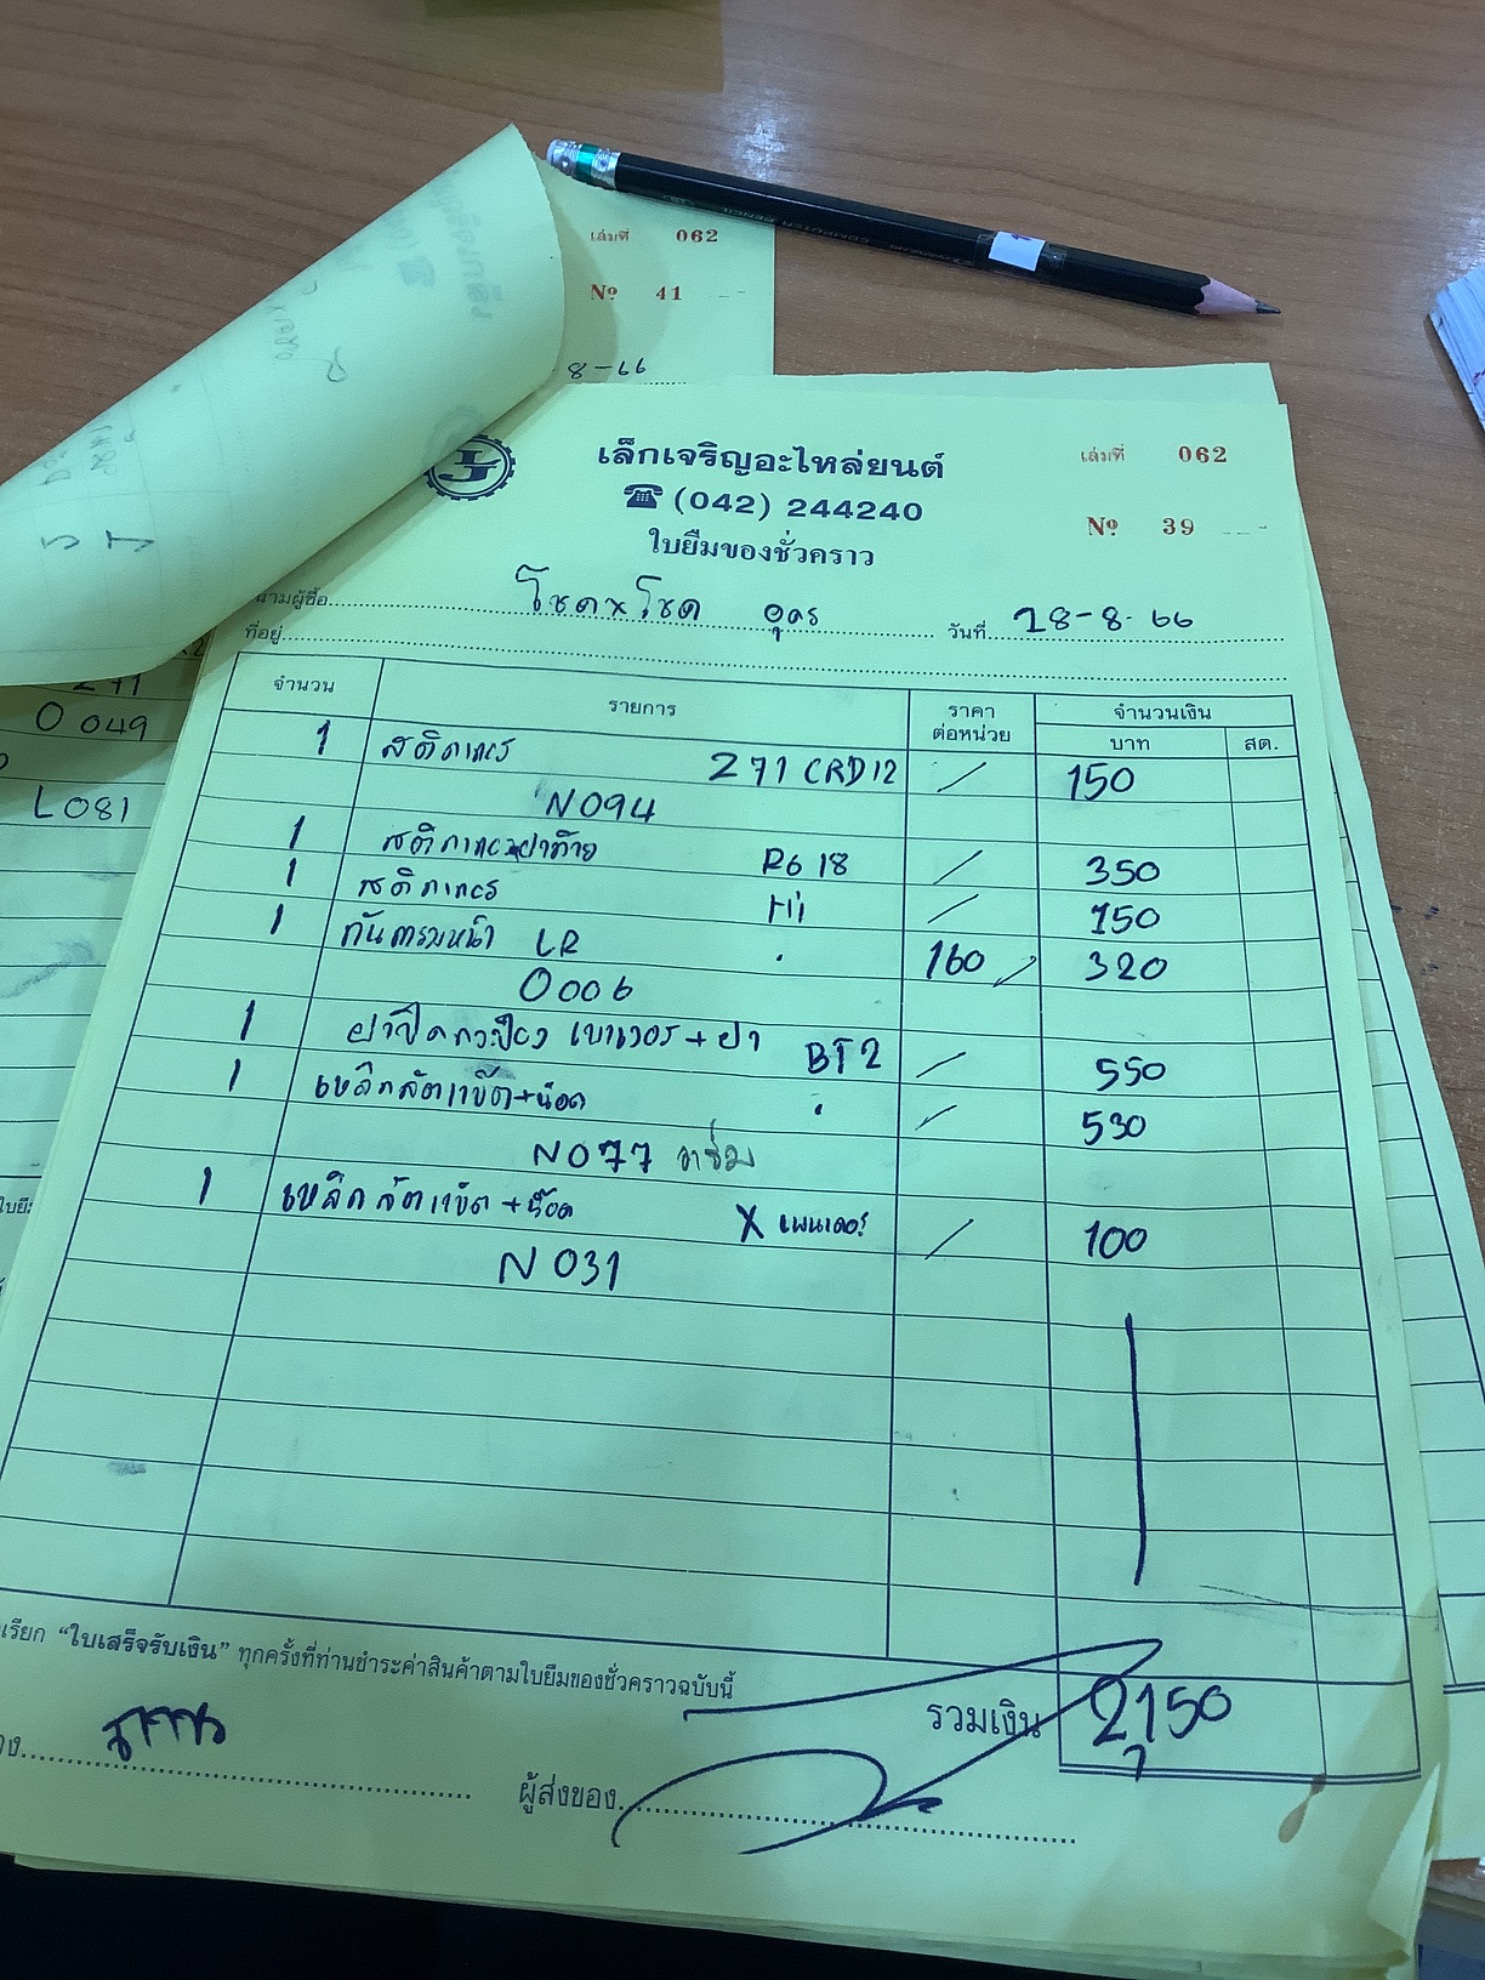 เล่มที่ 062
Nº 41
8-66
LJ
เล็กเจริญอะไหล่ยนต์
เล่มที่ 062
☎ (042) 244240
Nº 39
ใบยืมของชั่วคราว
นามผู้ซื้อ โชคxโชค อุดร วันที่ 28-8-66
ที่อยู่
จำนวน รายการ ราคาต่อหน่วย จำนวนเงิน
บาท สต.
1 271 CRD12 / 150
N094
1 R6 18 / 350
1 / 150
1 กันตรมหน้า LR 160 / 320
0006
1 ฝาปิดกระป๋อง + ฝา BT2 / 550
1 เหล็กลัดแข๊ต+น๊อต / 530
N077 อาซ่ม
1 เหล็กลัดแข๊ต+น๊อต X เพนเดอร์ / 100
N031
271
0 049
L081
เรียก "ใบเสร็จรับเงิน" ทุกครั้งที่ท่านชำระค่าสินค้าตามใบยืมของชั่วคราวฉบับนี้
รวมเงิน 2150
ผู้ส่งของ